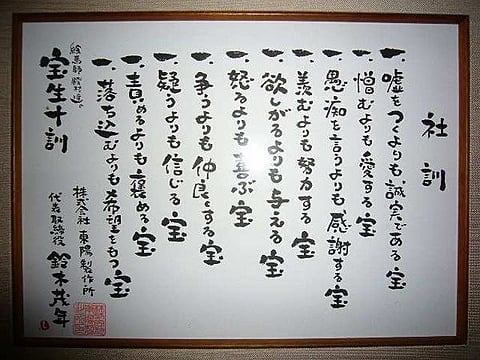 社訓
一、嘘をつくよりも誠実である宝
一、憎むよりも愛する宝
一、愚痴を言うよりも感謝する宝
一、羨むよりも努力する宝
一、欲しがるよりも与える宝
一、怒るよりも喜ぶ宝
一、争うよりも仲良くする宝
一、疑うよりも信じる宝
一、責めるよりも褒める宝
一、落ち込むよりも希望をもつ宝
宝生十訓
株式会社 東陽製作所
代表取締役 鈴木茂年